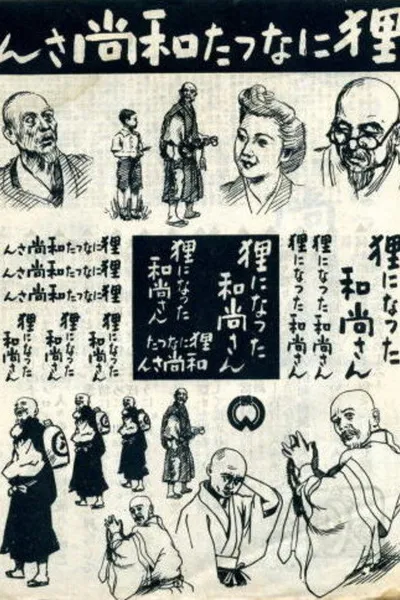 狸になつた和尚さん
狸になった
和尚さん
狸になった和尚さん
狸になった和尚さん
狸になった
和尚さん
狸になった
和尚さん
狸になつた
和尚さん
狸になつた和尚さん
狸になつた和尚さん
狸になつた和尚さん
狸になった
和尚さん
狸になった
和尚さん
狸になった
和尚さん